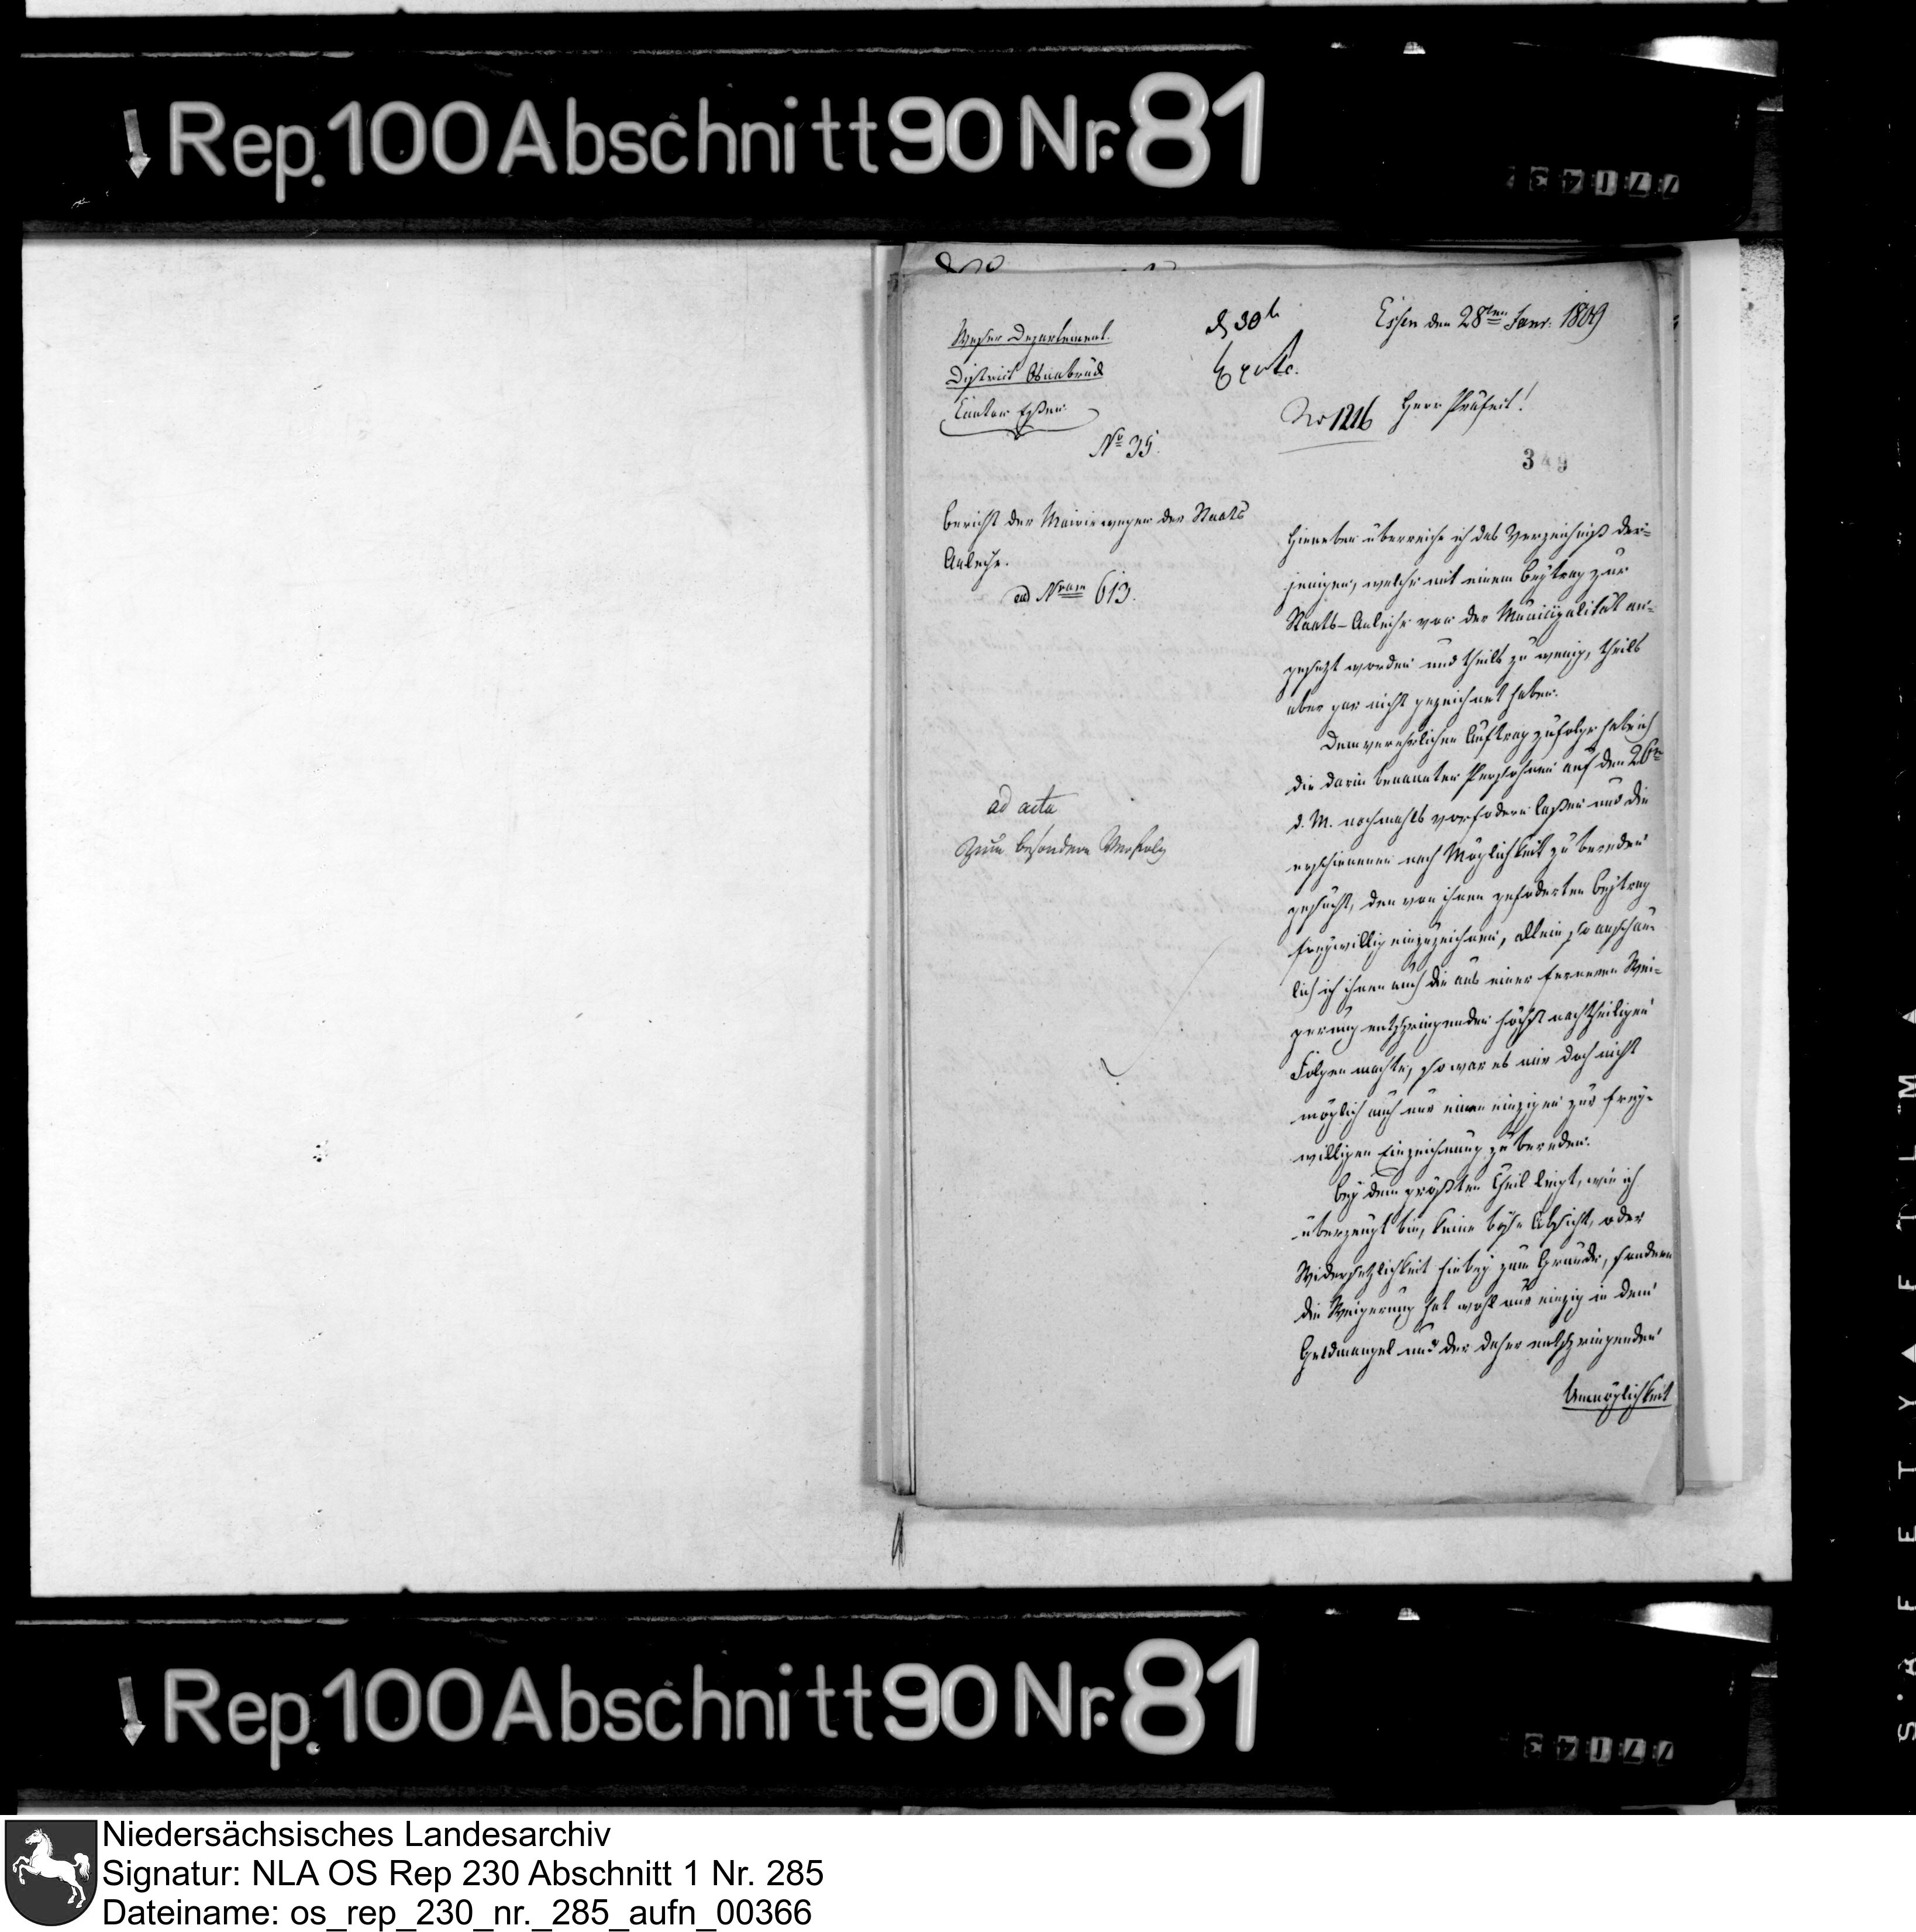 Rep. 100 Abschnitt 90 Nr. 81
Weser Departement.
District Osnabrück
Canton Essen
No 35.
Essen den 28ten Janr. 1809
No 1216
Herr Präfect!
349
Bericht der Mairie wegen der Staats
Anleihe.
ad Nrum 613.
ad acta
zum besondern Verfolg
Hieneben überreiche ich das Verzeichniß der=
jenigen, welche mit einem Beytrag zur
Staats-Anleihe von der Municipalität an=
gesetzt worden und theils zu wenig, theils
aber gar nicht gezeichnet haben.
Dem verehrlichen Auftrag zufolge habe ich
die darin benannten Persohnen auf den 26ten
d. M. nochmahls vorfodern laßen und die
erschienenen nach Möglichkeit zu bereden
gesucht, den von ihnen gefoderten Beytrag
freywillig einzuzeichnen, allein so anschau=
lich ich ihnen auch die aus einer ferneren Wei=
gerung entspringenden höchst nachtheiligen
Folgen machte, so war es mir doch nicht
möglich auch nur einen einzigen zur frey=
willigen Einzeichnung zu bereden.
Bey dem größten Theil liegt, wie ich
überzeugt bin, keine böse Absicht, oder
Widersetzlichkeit hiebey zum Grunde, sondern
die Weigerung hat wohl nur einzig in dem
Geldmangel und der daher entspringenden
Unmöglichkeit
Rep. 100 Abschnitt 90 Nr. 81
Niedersächsisches Landesarchiv
Signatur: NLA OS Rep 230 Abschnitt 1 Nr. 285
Dateiname: os_rep_230_nr._285_aufn_00366